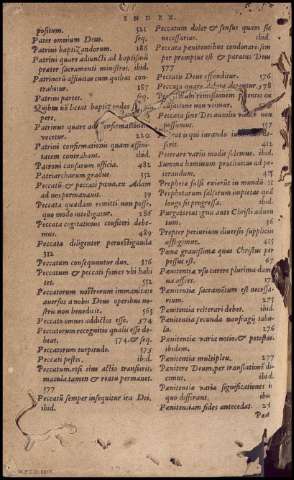 INDEX.
positum. 521
Pater omnium Deus. seq.
Patrini baptizandorum. 186
Patrini quare adiuncti ad baptismū
præter sacramenti ministros. ibid.
Patrinorū affinitas cum quibus con-
trahitur. 187
Patrini partes.
Quibus nō liceat baptizandos
pere.
Patrinus quare ad confirmationē
vocetur. 220
Patrini confirmationis quam affini-
tatem contrahant. ibid.
Patrini causarum officia. 482
Patriarcharum gradus. 312
Peccatū & peccati pœna, ex Adam
ad nos permanarunt. 39
Peccata quædam remitti non posse,
quo modo intelligatur. 286
Peccata cogitationis confiteri debe-
mus. 489
Peccata diligenter peruestiganda
312
Peccatum consequuntur duo. 376
Peccatum & peccati fomes vbi habi
tet. 552
Peccatorum nostrorum immanitate
auersus a nobis Deus operibus no-
stris non benedicit. 565
Peccato omnes addictos esse. 574
Peccatorum recognitio qualis esse de-
beat. 574, & seq.
Peccatorum turpitudo. 575
Peccati pestes. ibid.
Peccatum, etsi eius actio transierit,
macula tamen & reatu permanet.
577
Peccatū semper insequitur ira Dei,
ibid.
Peccatum dolor & sensus quare sit
necessarius. ibid.
Peccata pœnitentibus condonare, sem
per promptus est & paratus Deus
577
Peccatis Deus offenditur. 576
578
ibid.
412
Peccare vario modo solemus. ibid.
ibid.
Prophetæ falsi euenerit in mundo.
Prophetarum falsorum impietas quā
longe sit progressa. ibid.
Purgatorius ignis ante Christi aduen
tum. 56
Propter periurium diuersis supplicijs
affligimur. 415
Pœna grauissima quas Christus per
pessus est. 67
Pœnitentiæ vsu carere plurima dam-
na asserre. 265
Pœnitentiæ sacramētum est necessa-
rium. 275
Pœnitentia reiterari debet. ibid.
Pœnitentia secunda naufragij tabu-
la. 276
Pœnitentiæ varia notio, & potestas.
ibidem.
Pœnitentia multiplex. 277
Pœnitere Deum, per translationē di-
cimus. ibid.
Pœnitentiæ varia significationes in
quo differant. ibid.
Pœnitentiam fides antecedat.